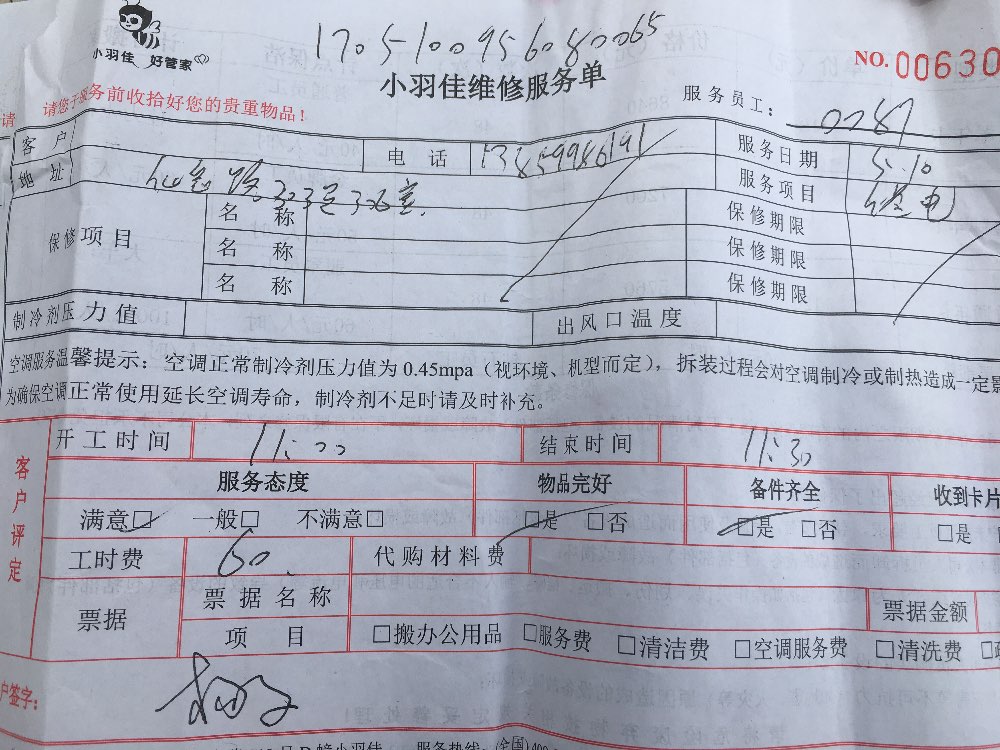 1705100956080065
小羽佳 好管家
小羽佳维修服务单
NO. 00630
请您于服务前收拾好您的贵重物品！
服务员工： 0287
客户 电话 13859986191 服务日期 5.10
地址 路 室 服务项目 修电
保修项目 名称 保修期限
名称 保修期限
名称 保修期限
制冷剂压力值 出风口温度
空调服务温馨提示：空调正常制冷剂压力值为 0.45mpa（视环境、机型而定），拆装过程会对空调制冷或制热造成一定影
为确保空调正常使用延长空调寿命，制冷剂不足时请及时补充。
客户评定
开工时间 11:00 结束时间 11:30
服务态度 物品完好 备件齐全 收到卡片
满意□ 一般□ 不满意□ □是 □否 □是 □否 □是
工时费 60. 代购材料费
票据 票据名称 票据金额
项目 □搬办公用品 □服务费 □清洁费 □空调服务费 □清洗费
户签字：
服务热线：(全国)400